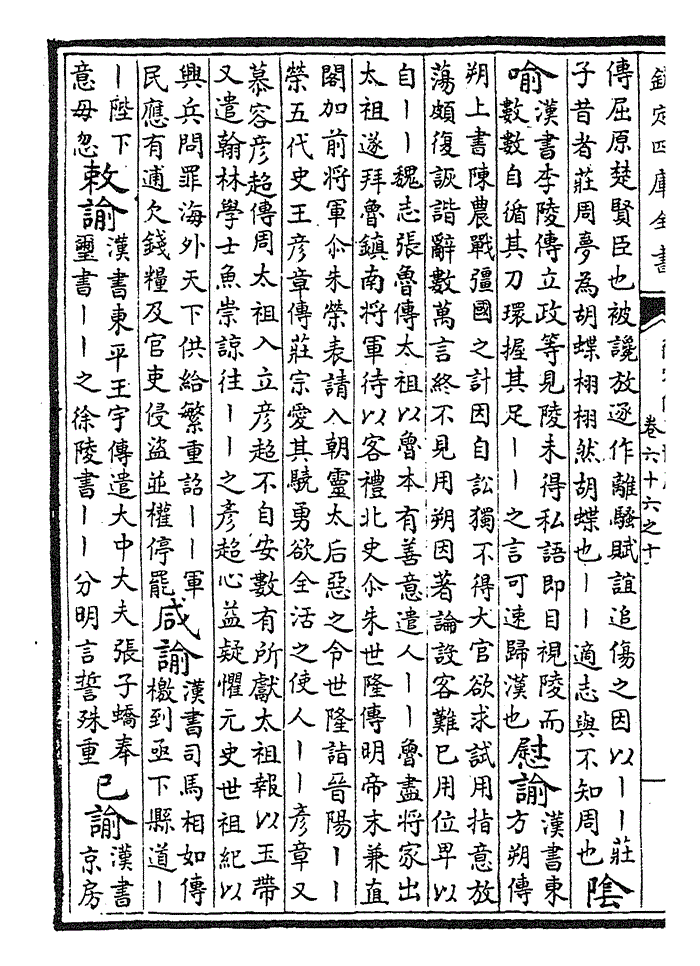 欽定四庫全書
卷六十六之十
傳屈原楚賢臣也被讒放逐作離騷賦誼追傷之因以丨丨莊
子昔者莊周夢為胡蝶栩栩然胡蝶也丨丨適志與不知周也
陰
喻
漢書李陵傳立政等見陵未得私語即目視陵而
數數自循其刀環握其足丨丨之言可速歸漢也
慰諭
漢書東
方朔傳
朔上書陳農戰彊國之計因自訟獨不得大官欲求試用指意放
蕩頗復詼諧辭數萬言終不見用朔因著論設客難己用位卑以
自丨丨魏志張魯傳太祖以魯本有善意遣人丨丨魯盡將家出
太祖遂拜魯鎮南將軍待以客禮北史尒朱世隆傳明帝末兼直
閣加前將軍尒朱榮表請入朝靈太后惡之令世隆詣晉陽丨丨
榮五代史王彥章傳莊宗愛其驍勇欲全活之使人丨丨彥章又
慕容彥超傳周太祖入立彥超不自安數有所獻太祖報以玉帶
又遣翰林學士魚崇諒往丨丨之彥超心益疑懼元史世祖紀以
興兵問罪海外天下供給繁重詔丨丨軍
民應有逋欠錢糧及官吏侵盜並權停罷
咸諭
漢書司馬相如傳
檄到亟下縣道丨
丨陛下
意毋忽
敕諭
漢書東平王宇傳遣大中大夫張子蟜奉
璽書丨丨之徐陵書丨丨分明言誓殊重
已諭
漢書
京房